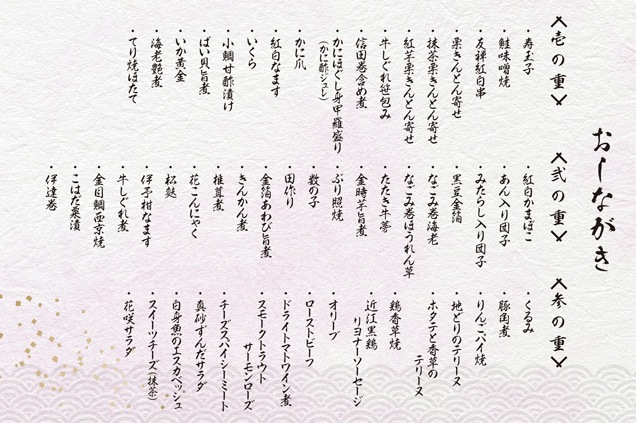 おしながき
壱の重
・寿玉子
・鮭味噌焼
・友禅紅白串
・栗きんとん寄せ
・抹茶栗きんとん寄せ
・紅芋栗きんとん寄せ
・牛しぐれ笹包み
・信田巻含め煮
・かにほぐし身甲羅盛り
(かに酢ジュレ)
・かに爪
・紅白なます
・いくら
・小鯛甘酢漬け
・ばい貝旨煮
・いか黄金
・海老艶煮
・てり焼ほたて
弐の重
・紅白かまぼこ
・あん入り団子
・みたらし入り団子
・黒豆金箔
・なごみ巻海老
・なごみ巻ほうれん草
・たたき牛蒡
・金時芋旨煮
・ぶり照焼
・数の子
・田作り
・金箔あわび旨煮
・きんかん煮
・椎茸煮
・花こんにゃく
・松麩
・伊予柑なます
・牛しぐれ煮
・金目鯛西京焼
・こはだ粟漬
・伊達巻
参の重
・くるみ
・豚角煮
・りんごパイ焼
・地どりのテリーヌ
・ホタテと香草の
テリーヌ
・鶏香草焼
・近江黒鶏
リヨナーソーセージ
・オリーブ
・ローストビーフ
・ドライトマトワイン煮
・スモークトラウト
サーモンローズ
・チーズスパイシーミート
・真砂ずんだサラダ
・白身魚のエスカベッシュ
・スイーツチーズ(抹茶)
・花咲サラダ